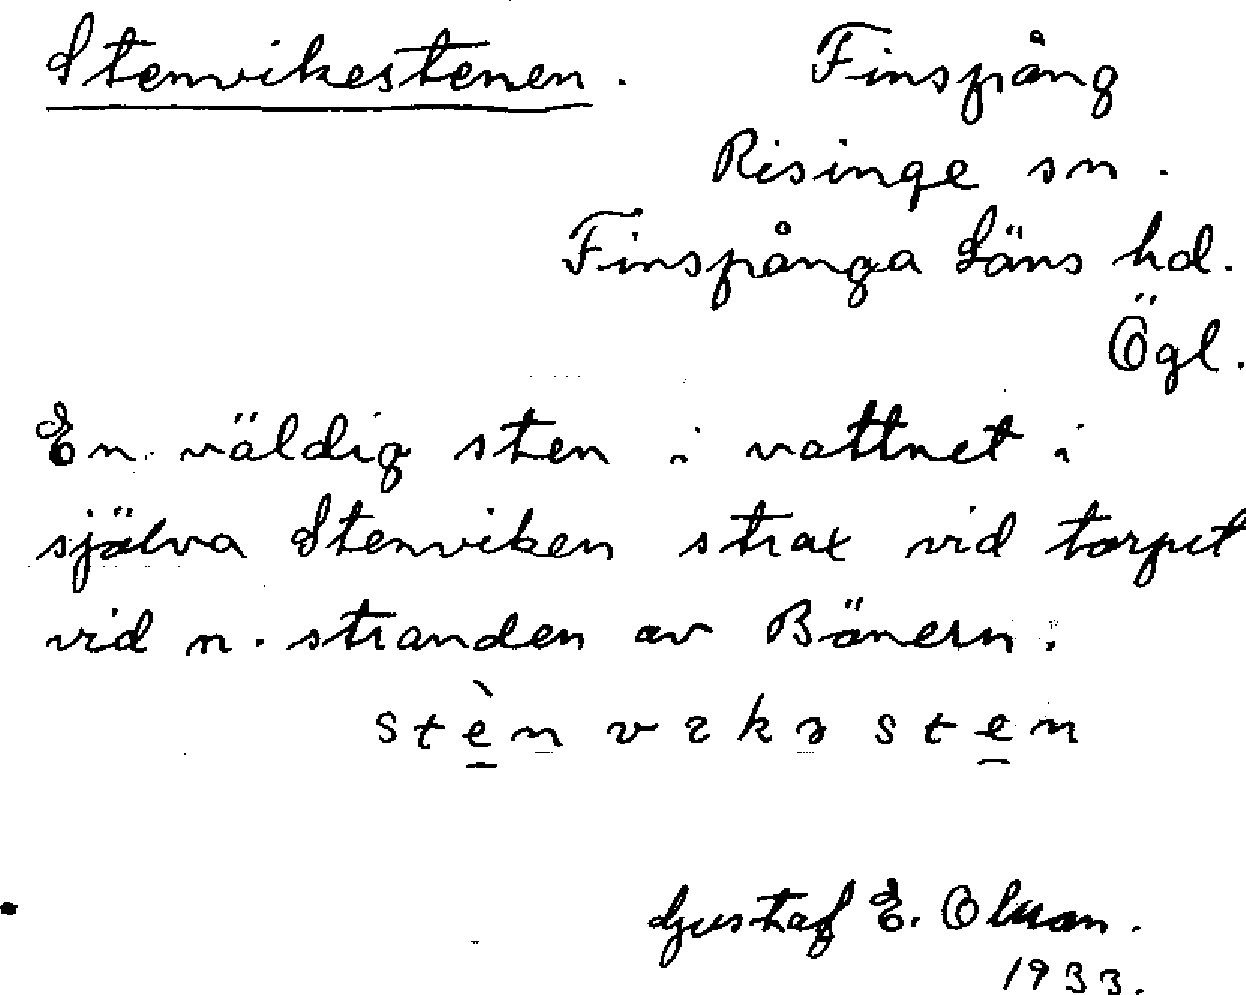 Stenvikestenen. Finspång
Risinge sn.
Finspånga Läns hd.
Ögl.
En väldig sten i vattnet i
själva Stenviken strax vid torpet
vid n. stranden av Bönern.
Gustaf E. Olsson.
1933.